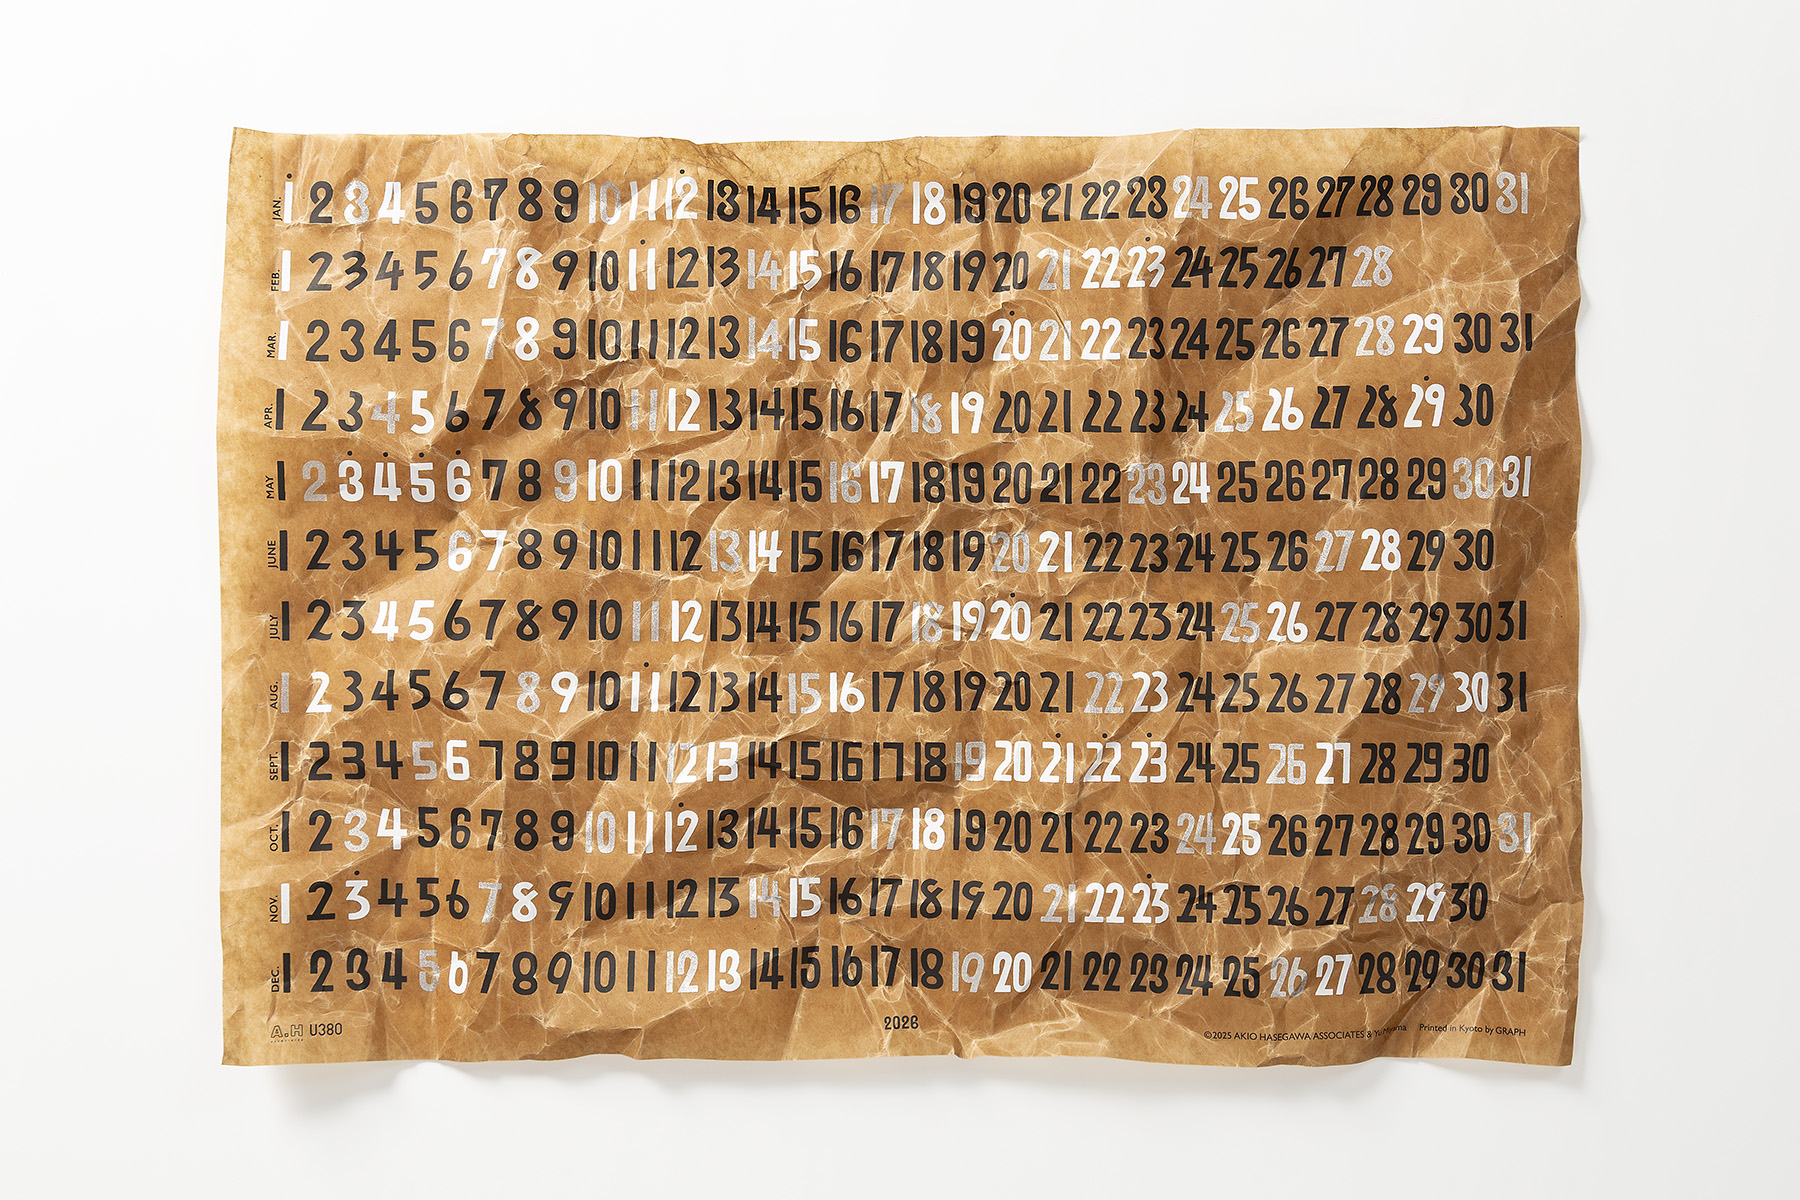 JAN. 1 2 3 4 5 6 7 8 9 10 11 12 13 14 15 16 17 18 19 20 21 22 23 24 25 26 27 28 29 30 31
FEB. 1 2 3 4 5 6 7 8 9 10 11 12 13 14 15 16 17 18 19 20 21 22 23 24 25 26 27 28
MAR. 1 2 3 4 5 6 7 8 9 10 11 12 13 14 15 16 17 18 19 20 21 22 23 24 25 26 27 28 29 30 31
APR. 1 2 3 4 5 6 7 8 9 10 11 12 13 14 15 16 17 18 19 20 21 22 23 24 25 26 27 28 29 30
MAY 1 2 3 4 5 6 7 8 9 10 11 12 13 14 15 16 17 18 19 20 21 22 23 24 25 26 27 28 29 30 31
JUNE 1 2 3 4 5 6 7 8 9 10 11 12 13 14 15 16 17 18 19 20 21 22 23 24 25 26 27 28 29 30
JULY 1 2 3 4 5 6 7 8 9 10 11 12 13 14 15 16 17 18 19 20 21 22 23 24 25 26 27 28 29 30 31
AUG. 1 2 3 4 5 6 7 8 9 10 11 12 13 14 15 16 17 18 19 20 21 22 23 24 25 26 27 28 29 30 31
SEPT. 1 2 3 4 5 6 7 8 9 10 11 12 13 14 15 16 17 18 19 20 21 22 23 24 25 26 27 28 29 30
OCT. 1 2 3 4 5 6 7 8 9 10 11 12 13 14 15 16 17 18 19 20 21 22 23 24 25 26 27 28 29 30 31
NOV. 1 2 3 4 5 6 7 8 9 10 11 12 13 14 15 16 17 18 19 20 21 22 23 24 25 26 27 28 29 30
DEC. 1 2 3 4 5 6 7 8 9 10 11 12 13 14 15 16 17 18 19 20 21 22 23 24 25 26 27 28 29 30 31
A.H U380 2026 ©2025 AKIO HASEGAWA ASSOCIATES & Printed in Kyoto by GRAPH